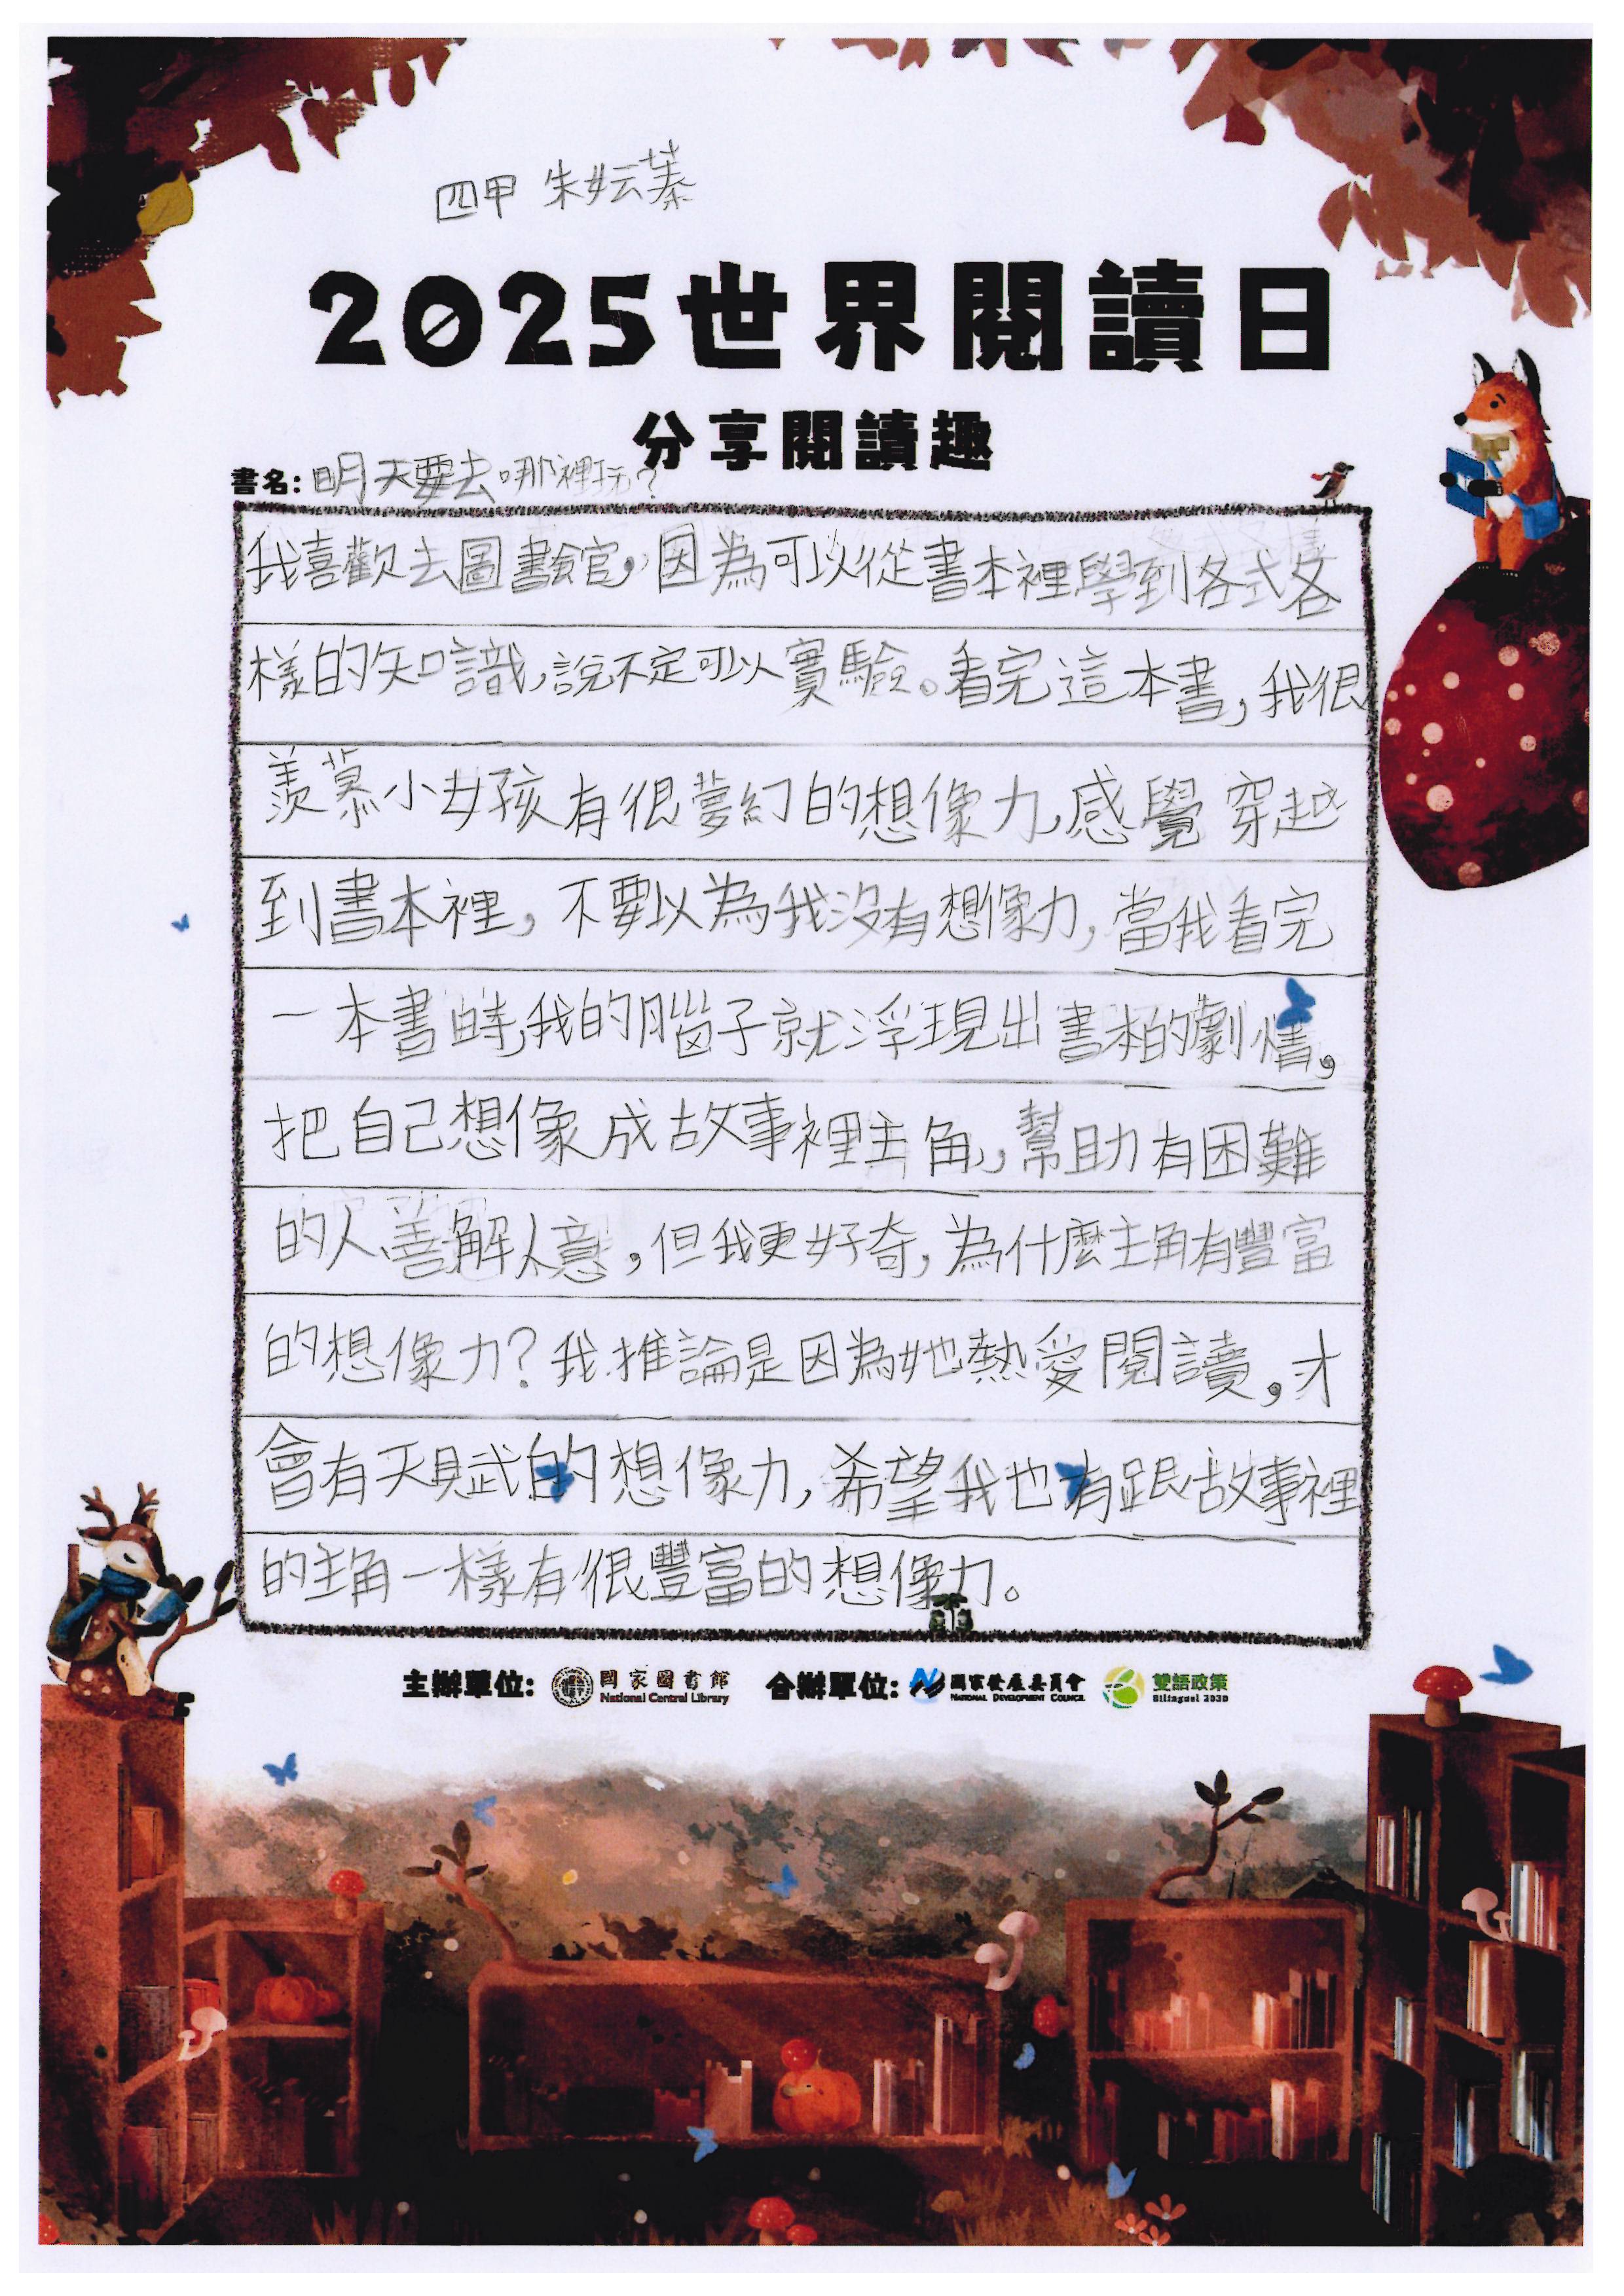 四甲 朱妘蓁
2025世界閱讀日
分享閱讀趣
書名：明天要去哪裡玩？
我喜歡去圖書館，因為可以從書本裡學到各式各
樣的知識，說不定可以實驗。看完這本書，我很
羨慕小女孩有很夢幻的想像力，感覺穿越
到書本裡，不要以為我沒有想像力，當我看完
一本書時，我的腦子就浮現出書本的劇情，
把自己想像成故事裡主角，幫助有困難
的人、善解人意，但我更好奇，為什麼主角有豐富
的想像力？我推論是因為她熱愛閱讀，才
會有天賦的想像力，希望我也有跟故事裡
的主角一樣有很豐富的想像力。
主辦單位： 國家圖書館 合辦單位： 國家發展委員會 雙語政策
National Central Library NATIONAL DEVELOPMENT COUNCIL Bilingual 2030